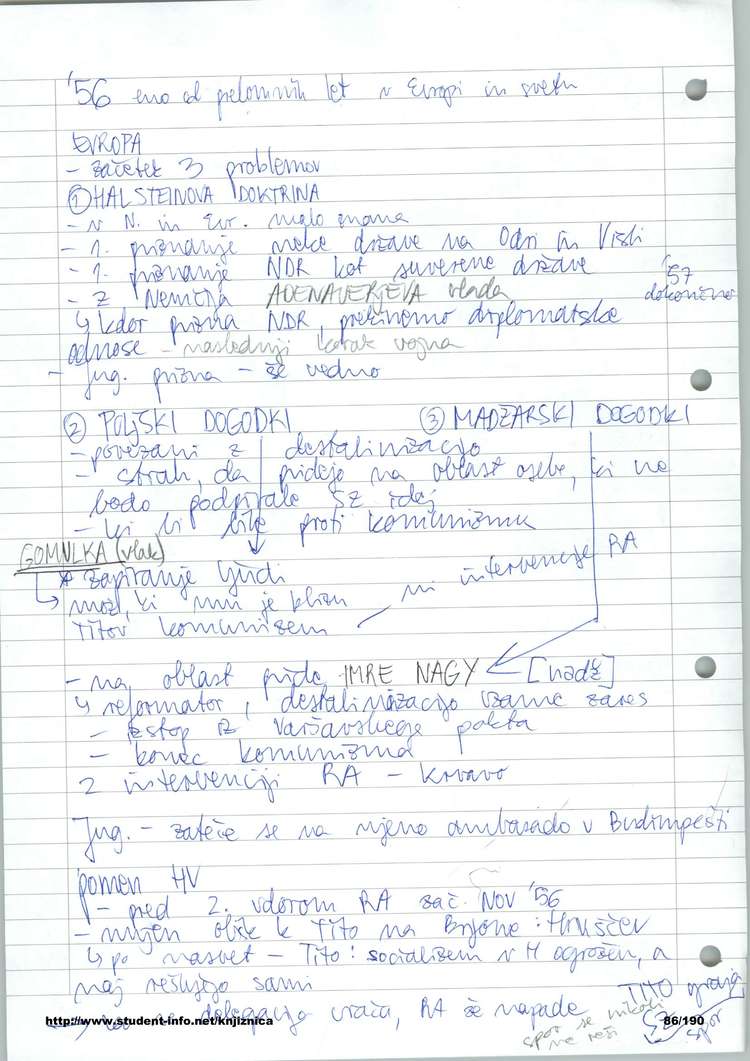 '56 eno od prelomnih let v Evropi in svetu
EVROPA
- začetek 3 problemov
① HALSTEINOVA DOKTRINA
- v N. in Evr. malo znana
- 1. priznanje meke države na Odri in Visli
- 1. priznanje NDR kot suverene države
'57
dokončno
- Z Nemčija ADENAUERJEVA vlada
↳ kdor prizna NDR, prekinemo diplomatske
odnose - naslednji korak vojna
- Jug. prizna - še vedno
② POLJSKI DOGODKI ③ MADŽARSKI DOGODKI
- povezani z destalinizacijo
- strah, da pridejo na oblast osebe, ki ne
bodo podpirale SZ idej
- ki bi bile proti komunizmu
GOMULKA (vlak)
zapiranje ljudi
mož, ki mu je blizu
Titov komunizem
ni intervencije RA
- na oblast pride IMRE NAGY [nadž]
↳ reformator, destalinizacijo vzame zares
- izstop iz Varšavskega pakta
- konec komunizma
2 intervenciji RA - krvavo
Jug. - zateče se na njeno ambasado v Budimpešti
pomen HV
- pred 2. vdorom RA zač. Nov '56
- nujen obisk k Tito na Brjone: Hruščev
↳ po nasvet - Tito: socializem v M ogrožen, a
naj rešujejo sami
delegacija vrača, RA že napade
TITO
spor se nikoli
ne reši
SZ
spor
http://www.student-info.net/knjiznica
86/190